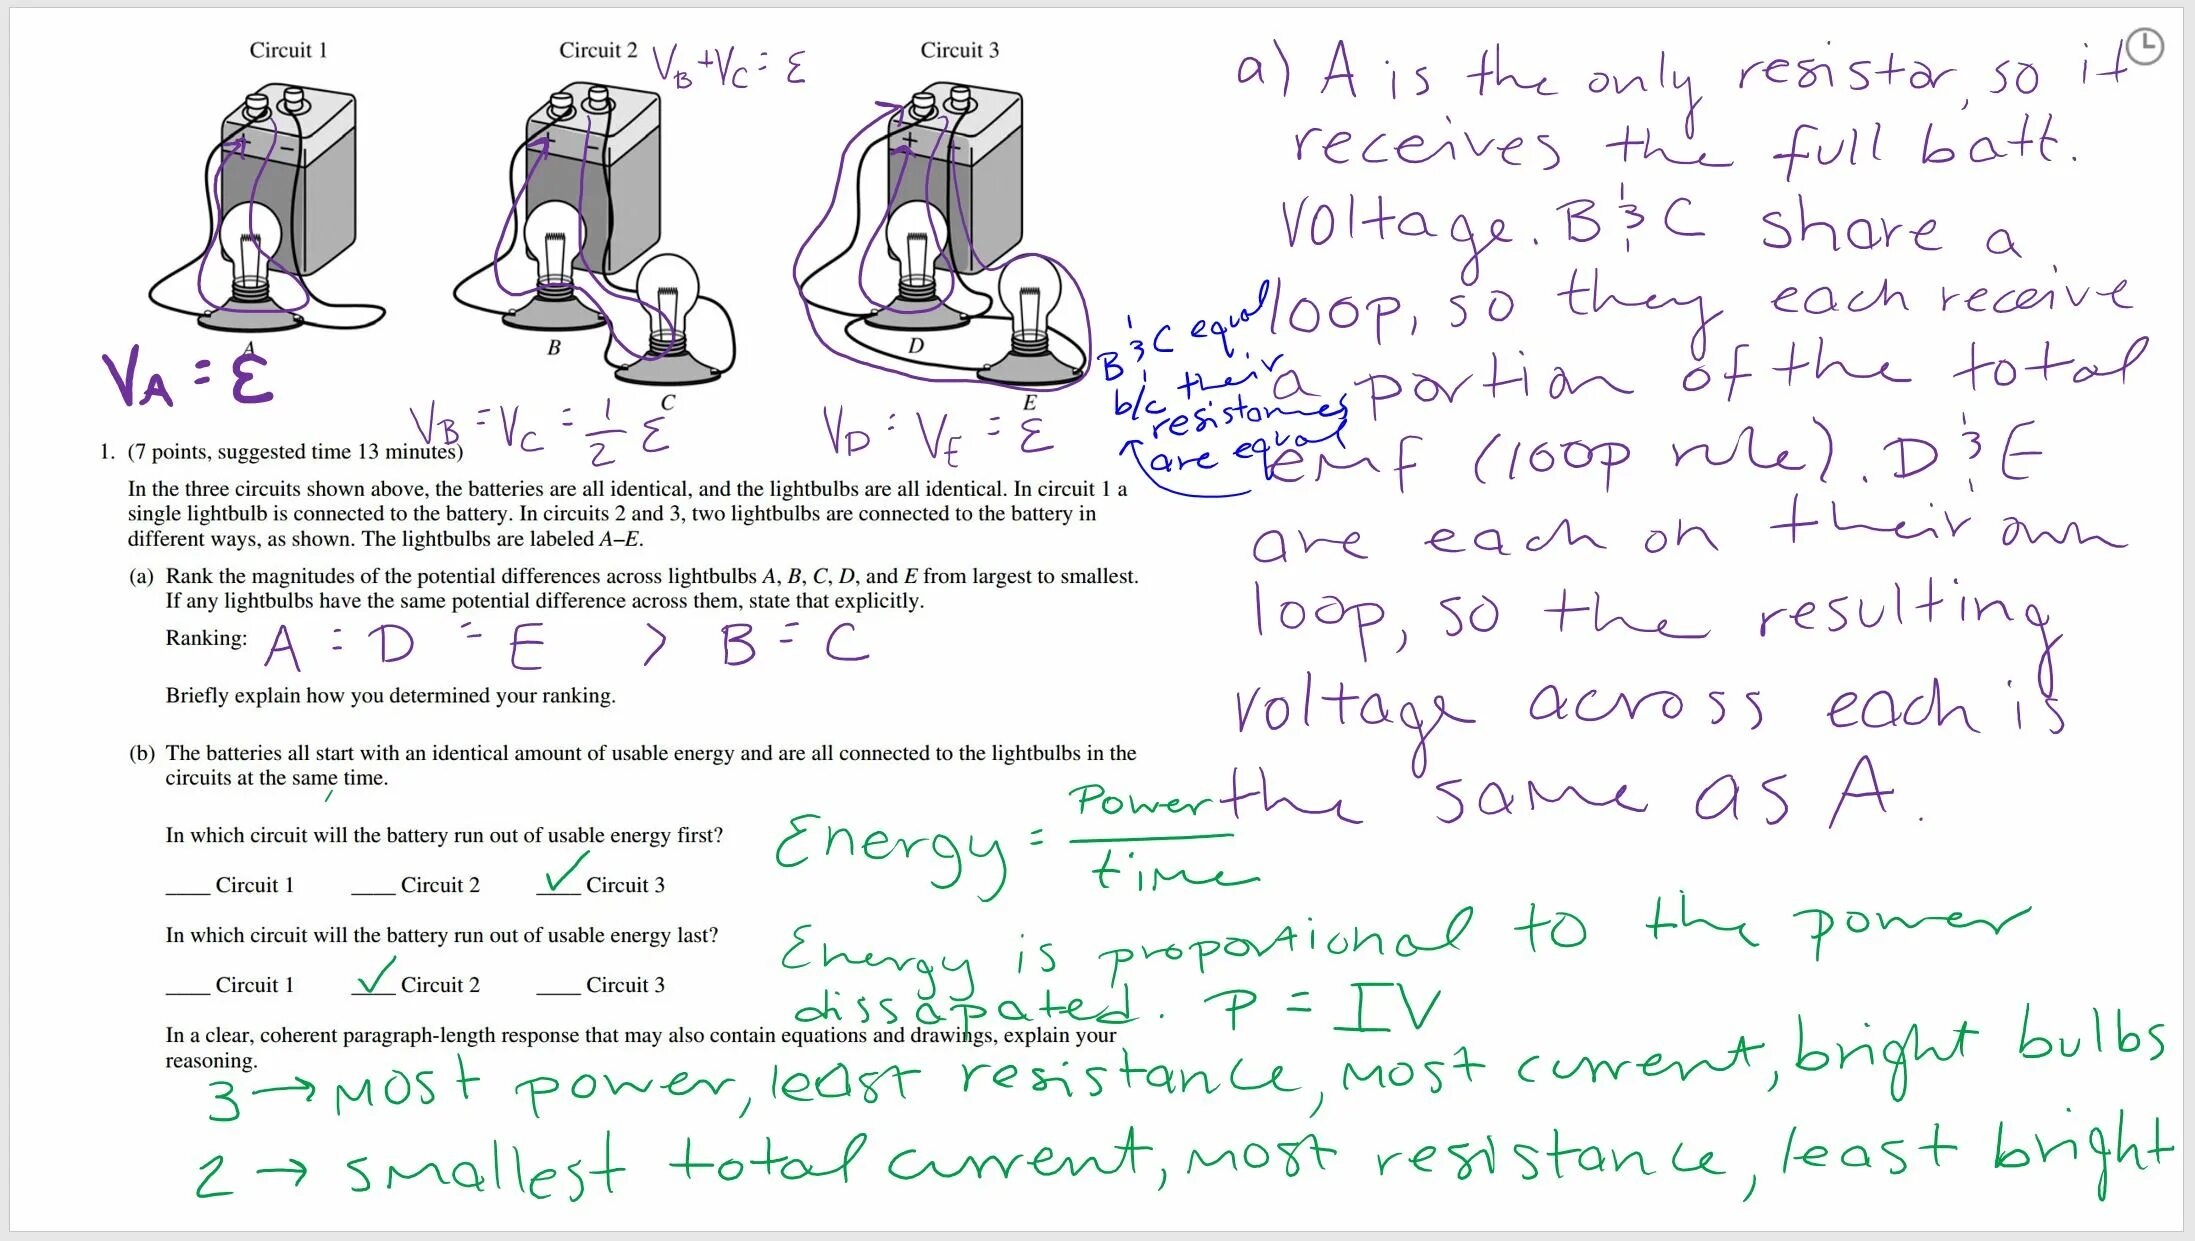 Circuit 1
Circuit 2
Circuit 3
V_B + V_C = ε
+ −
+ −
+ −
A
B
C
D
E
V_A = ε
V_B = V_C = 1/2 ε
V_D = V_E = ε
1. (7 points, suggested time 13 minutes)
In the three circuits shown above, the batteries are all identical, and the lightbulbs are all identical. In circuit 1 a
single lightbulb is connected to the battery. In circuits 2 and 3, two lightbulbs are connected to the battery in
different ways, as shown. The lightbulbs are labeled A–E.
(a) Rank the magnitudes of the potential differences across lightbulbs A, B, C, D, and E from largest to smallest.
If any lightbulbs have the same potential difference across them, state that explicitly.
Ranking: A = D = E > B = C
Briefly explain how you determined your ranking.
(b) The batteries all start with an identical amount of usable energy and are all connected to the lightbulbs in the
circuits at the same time.
In which circuit will the battery run out of usable energy first?
____ Circuit 1 ____ Circuit 2 _✓_ Circuit 3
In which circuit will the battery run out of usable energy last?
____ Circuit 1 _✓_ Circuit 2 ____ Circuit 3
In a clear, coherent paragraph-length response that may also contain equations and drawings, explain your
reasoning.
a) A is the only resistor, so it
receives the full batt.
voltage. B & C share a
loop, so they each receive
a portion of the total
emf (loop rule). D & E
are each on their own
loop, so the resulting
voltage across each is
the same as A.
B & C equal
b/c their
resistances
are equal
Energy = Power / time
Energy is proportional to the power
dissapated. P = IV
3 → most power, least resistance, most current, bright bulbs
2 → smallest total current, most resistance, least bright